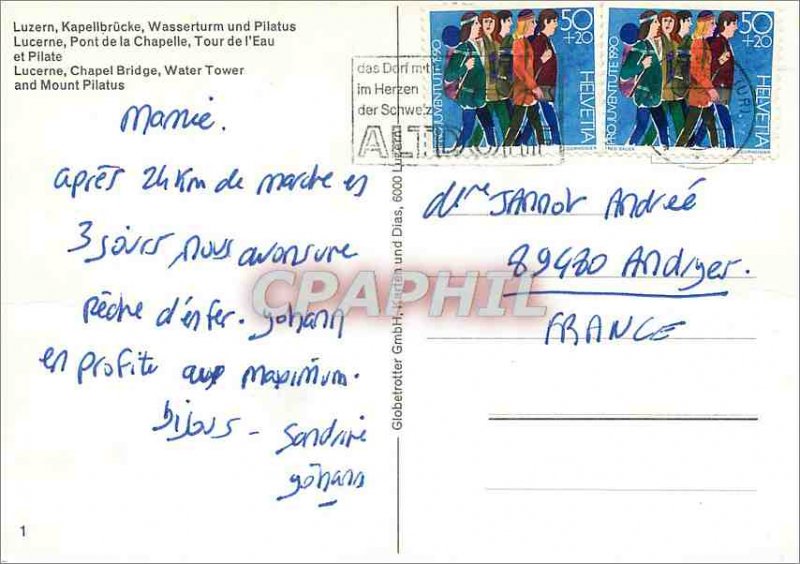 Luzern, Kapellbrücke, Wasserturm und Pilatus
Lucerne, Pont de la Chapelle, Tour de l'Eau
et Pilate
Lucerne, Chapel Bridge, Water Tower
and Mount Pilatus
Mamie.
après 24 Km de marche en
3 jours, nous avons une
pêche d'enfer. Yohann
en profite aux maximum.
bijous - Sandrine
Yohann
1
Globetrotter GmbH, Karten und Dias, 6000 Luzern
das Dorf mit
im Herzen
der Schweiz
ALTDORF
50
+20
HELVETIA
PRO JUVENTUTE 1990
50
+20
HELVETIA
PRO JUVENTUTE 1990
JANNOT Andrée
89480 Andryes.
FRANCE
CPAPHIL